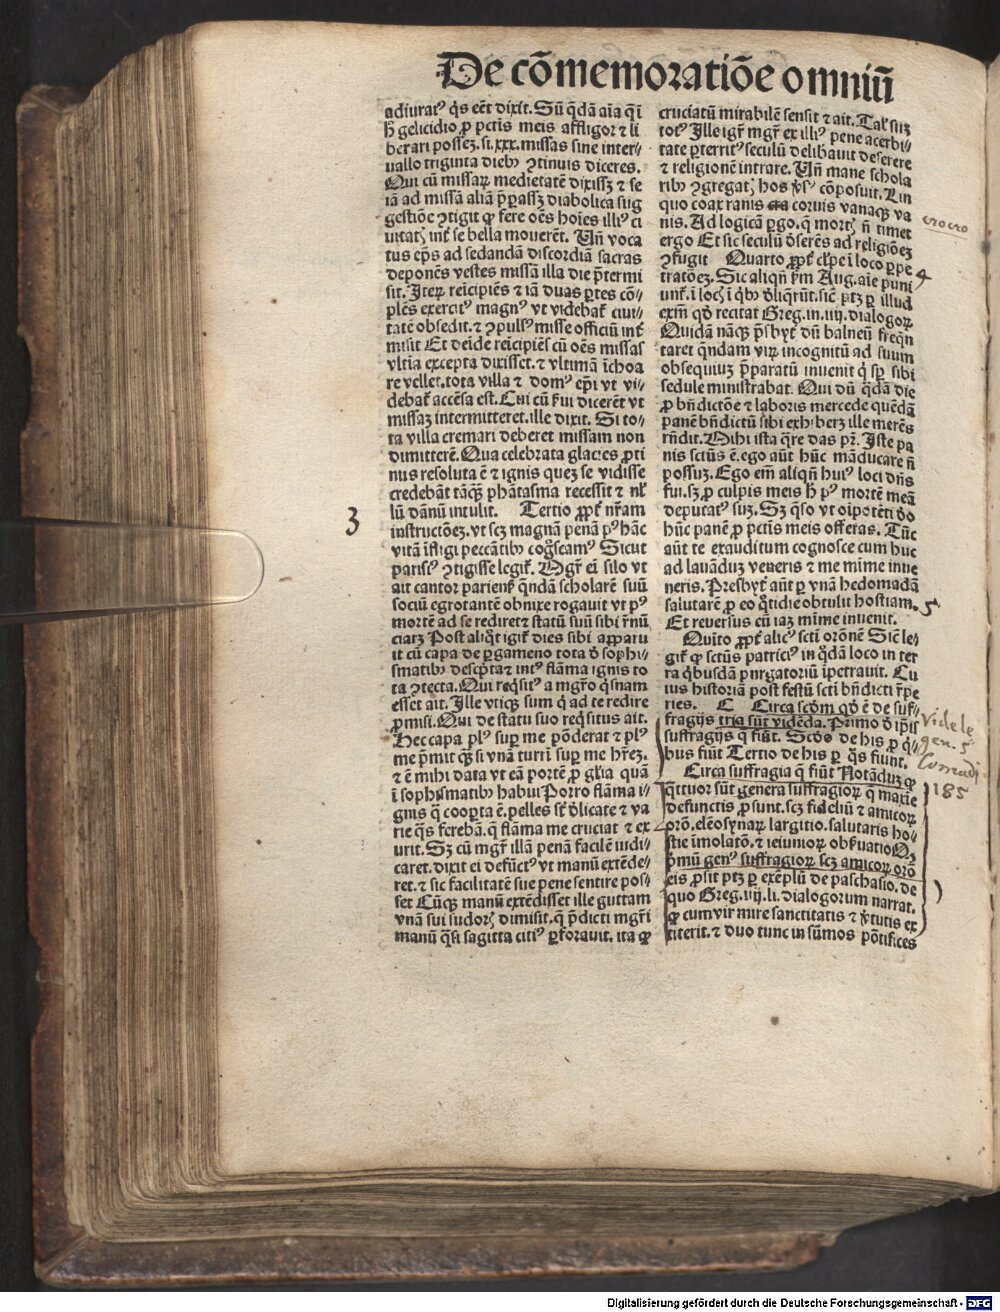 De cōmemoratiōe omniū
adiurat⁹ q̄s eēt dixit. Sū q̄dā aīa q̄ ī
h̄ gelicidio ꝓ pctīs meis affligor ⁊ li
berari possez. si .xxx. missas sine inter⸗
uallo triginta dieb⁹ ꝯtinuis diceres.
Qui cū missaꝝ medietatē dixissꝫ ⁊ se
iā ad missā aliā p̄parassꝫ diabolica sug
gestiōe ꝯtigit ꝙ fere oēs hoīes illi⁹ ci
uitatꝭ int̄ se bella mouerēt. Un̄ voca
tus ep̄s ad sedandā discordiā sacras
deponēs vestes missā illa die p̄termi
sit. Iteꝝ reīcipiēs ⁊ iā duas ꝑtes cō⸗
plēs exercit⁹ magn⁹ vt videbat̄ ciui⸗
tatē obsedit. ⁊ ꝯpuls⁹ misse officiū int̄
misit Et deīde reīcipiēs cū oēs missas
vltīa excepta dixisset. ⁊ vltimā īchoa
re vellet. tota villa ⁊ dom⁹ ep̄i vt vi⸗
debat̄ accēsa est. Cui cū s̄ui dicerēt vt
missaꝫ intermitteret. ille dixit. Si to⸗
ta villa cremari deberet missam non
dimitterē. Qua celebrata glacies ꝓti
nus resoluta ē ⁊ ignis quez se vidisse
credebāt tāq̄ꝫ phātasma recessit ⁊ nł
lū dānū intulit. Tertio ꝓpt̄ nr̄am
3
instructōeꝫ. vt scꝫ magnā penā p⁹ hāc
vitā īfligi peccātib⁹ cog̅scam⁹ Sicut
parisi⁹ ꝯtigisse legit̄. Mgr̄ ei silo vt
ait cantor pariens̄ q̄ndā scholarē suū
sociū egrotantē obnixe rogauit vt p⁹
mortē ad se rediret ⁊ statū suū sibi r̄nū
ciaꝫ Post aliq̄t igit̄ dies sibi apparu
it cū capa de ꝑgameno tota d̄ sophi⸗
smatib⁹ descp̄ta ⁊ int⁹ flāma ignis to
ta ꝯtecta. Qui req̄sit⁹ a mgr̄o q̄snam
esset ait. Ille vtiqꝫ sum q̄ ad te redire
ꝓmisi. Qui de statu suo req̄situs ait.
Hec capa pl⁹ suꝑ me pōderat ⁊ pl⁹
me p̄mit q̄ꝫ si vnā turrī suꝑ me hr̄eꝫ.
⁊ ē mihi data vt eā portē ꝓ glīa quā
ī sophismatib⁹ habui Porro flāma i⸗
gnis q̄ cooꝑta ē. pelles st̄ d̄licate ⁊ va
rie q̄s ferebā. q̄ flāma me cruciat ⁊ ex
urit. Sꝫ cū mgr̄ illā penā facilē iudi⸗
caret. dixit ei defūct⁹ vt manū extēde⸗
ret. ⁊ sic facilitatē sue pene sentire pos⸗
set Cūqꝫ manū extēdisset ille guttam
vnā sui sudorꝭ dimisit. q̄ p̄dicti mgr̄i
manū q̄si sagitta citi⁹ ꝑforauit. ita ꝙ
cruciatū mirabilē sensit ⁊ ait. Tal̄ suꝫ
tot⁹ Ille igr̄ mgr̄ ex illi⁹ pene acerbi⸗
tate ꝑterrit⁹ seculū delibauit deserere
⁊ religionē intrare. Un̄ mane schola
rib⁹ ꝯgregatꝭ hos v̄s⁹ cōposuit. Lin
quo coax ranis coruis vanaqꝫ va
cro cro
nis. Ad logicā ꝑgo. q̄ mortꝭ n̄ timet
ergo Et sic seculū d̄serēs ad religiōeꝫ
ꝯfugit Quarto ꝓpt̄ cl̄pe ī loco ꝑpe
4
tratōeꝫ. Sic aliqn̄ ẜm Aug. aīe puni
unt̄. ī locꝭ ī q̄b⁹ d̄liq̄rūt. sic̄ ptꝫ ꝑ illud
exm̄ qd̄ recitat Greg. in .iiij. dialogoꝝ
Quidā nāqꝫ p̄sbyt̄ dū balneū freq̄n
taret q̄ndam viꝝ incognitū ad suum
obsequiuꝫ p̄paratū inuenit q̄ sꝑ sibi
sedule ministrabat. Qui dū q̄dā die
ꝓ bn̄dictōe ⁊ laboris mercede quēdā
panē bn̄dictū sibi exhiberꝫ ille merēs
rn̄dit. Mihi ista q̄re das pr̄. Iste pa
nis sctūs ē. ego aūt hūc māducare n̄
possuꝫ. Ego em̄ aliqn̄ hui⁹ loci dn̄s
fui. sꝫ ꝓ culpis meis h̄ p⁹ mortē meā
deputat⁹ suꝫ. Sꝫ q̄so vt oīpotēti do
hūc panē ꝓ pctīs meis offeras. Tūc
aūt te exauditum cognosce cum huc
ad lauāduꝫ veneris ⁊ me mime inue
neris. Presbyt̄ aūt ꝑ vnā hedomadā
salutarē ꝓ eo q̄tidie obtulit hostiam.
5
Et reuersus cū iaꝫ mīme inuenit.
Quīto ꝓpt̄ alic⁹ scti orōnē Sic̄ le⸗
git̄ ꝙ sctūs patrici⁹ in q̄dā loco in ter
ra q̄busdā purgatoriū īpetrauit. Cu
ius historiā post festū scti bn̄dicti r̄pe
ries. C Circa scd̄m qd̄ ē de suf⸗
fragijs tria sūt vidēda. Primo d̄ ip̄is
suffragijs q̄ fiūt. Scd̄o de his ꝓ q̄⸗
bus fiūt Tertio de his ꝑ q̄s fiunt.
vide le
gen. 5
Conradi
185
Circa suffragia q̄ fiūt Notāduꝫ ꝙ
q̄ttuor sūt genera suffragioꝝ q̄ maxīe
defunctis ꝓsunt. scꝫ fideliū ⁊ amicoꝝ
orō. elēosynaꝝ largitio. salutaris ho⸗
stie īmolatō. ⁊ ieiunioꝝ obs̄uatio Qꝫ
p̄mū gen⁹ suffragioꝝ scꝫ amicoꝝ orō
eis ꝓsit ptꝫ ꝑ exēplū de paschasio. de
quo Greg. iiij. li. dialogorum narrat.
ꝙ cum vir mire sanctitatis ⁊ v̄tutis ex
titerit. ⁊ duo tunc in sūmos pōtifices
Digitalisierung gefördert durch die Deutsche Forschungsgemeinschaft - DFG